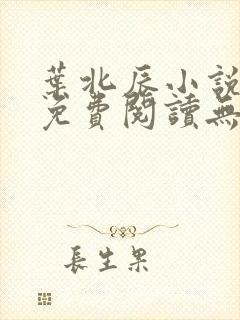 葉北辰小說
免費閱讀無
長生果